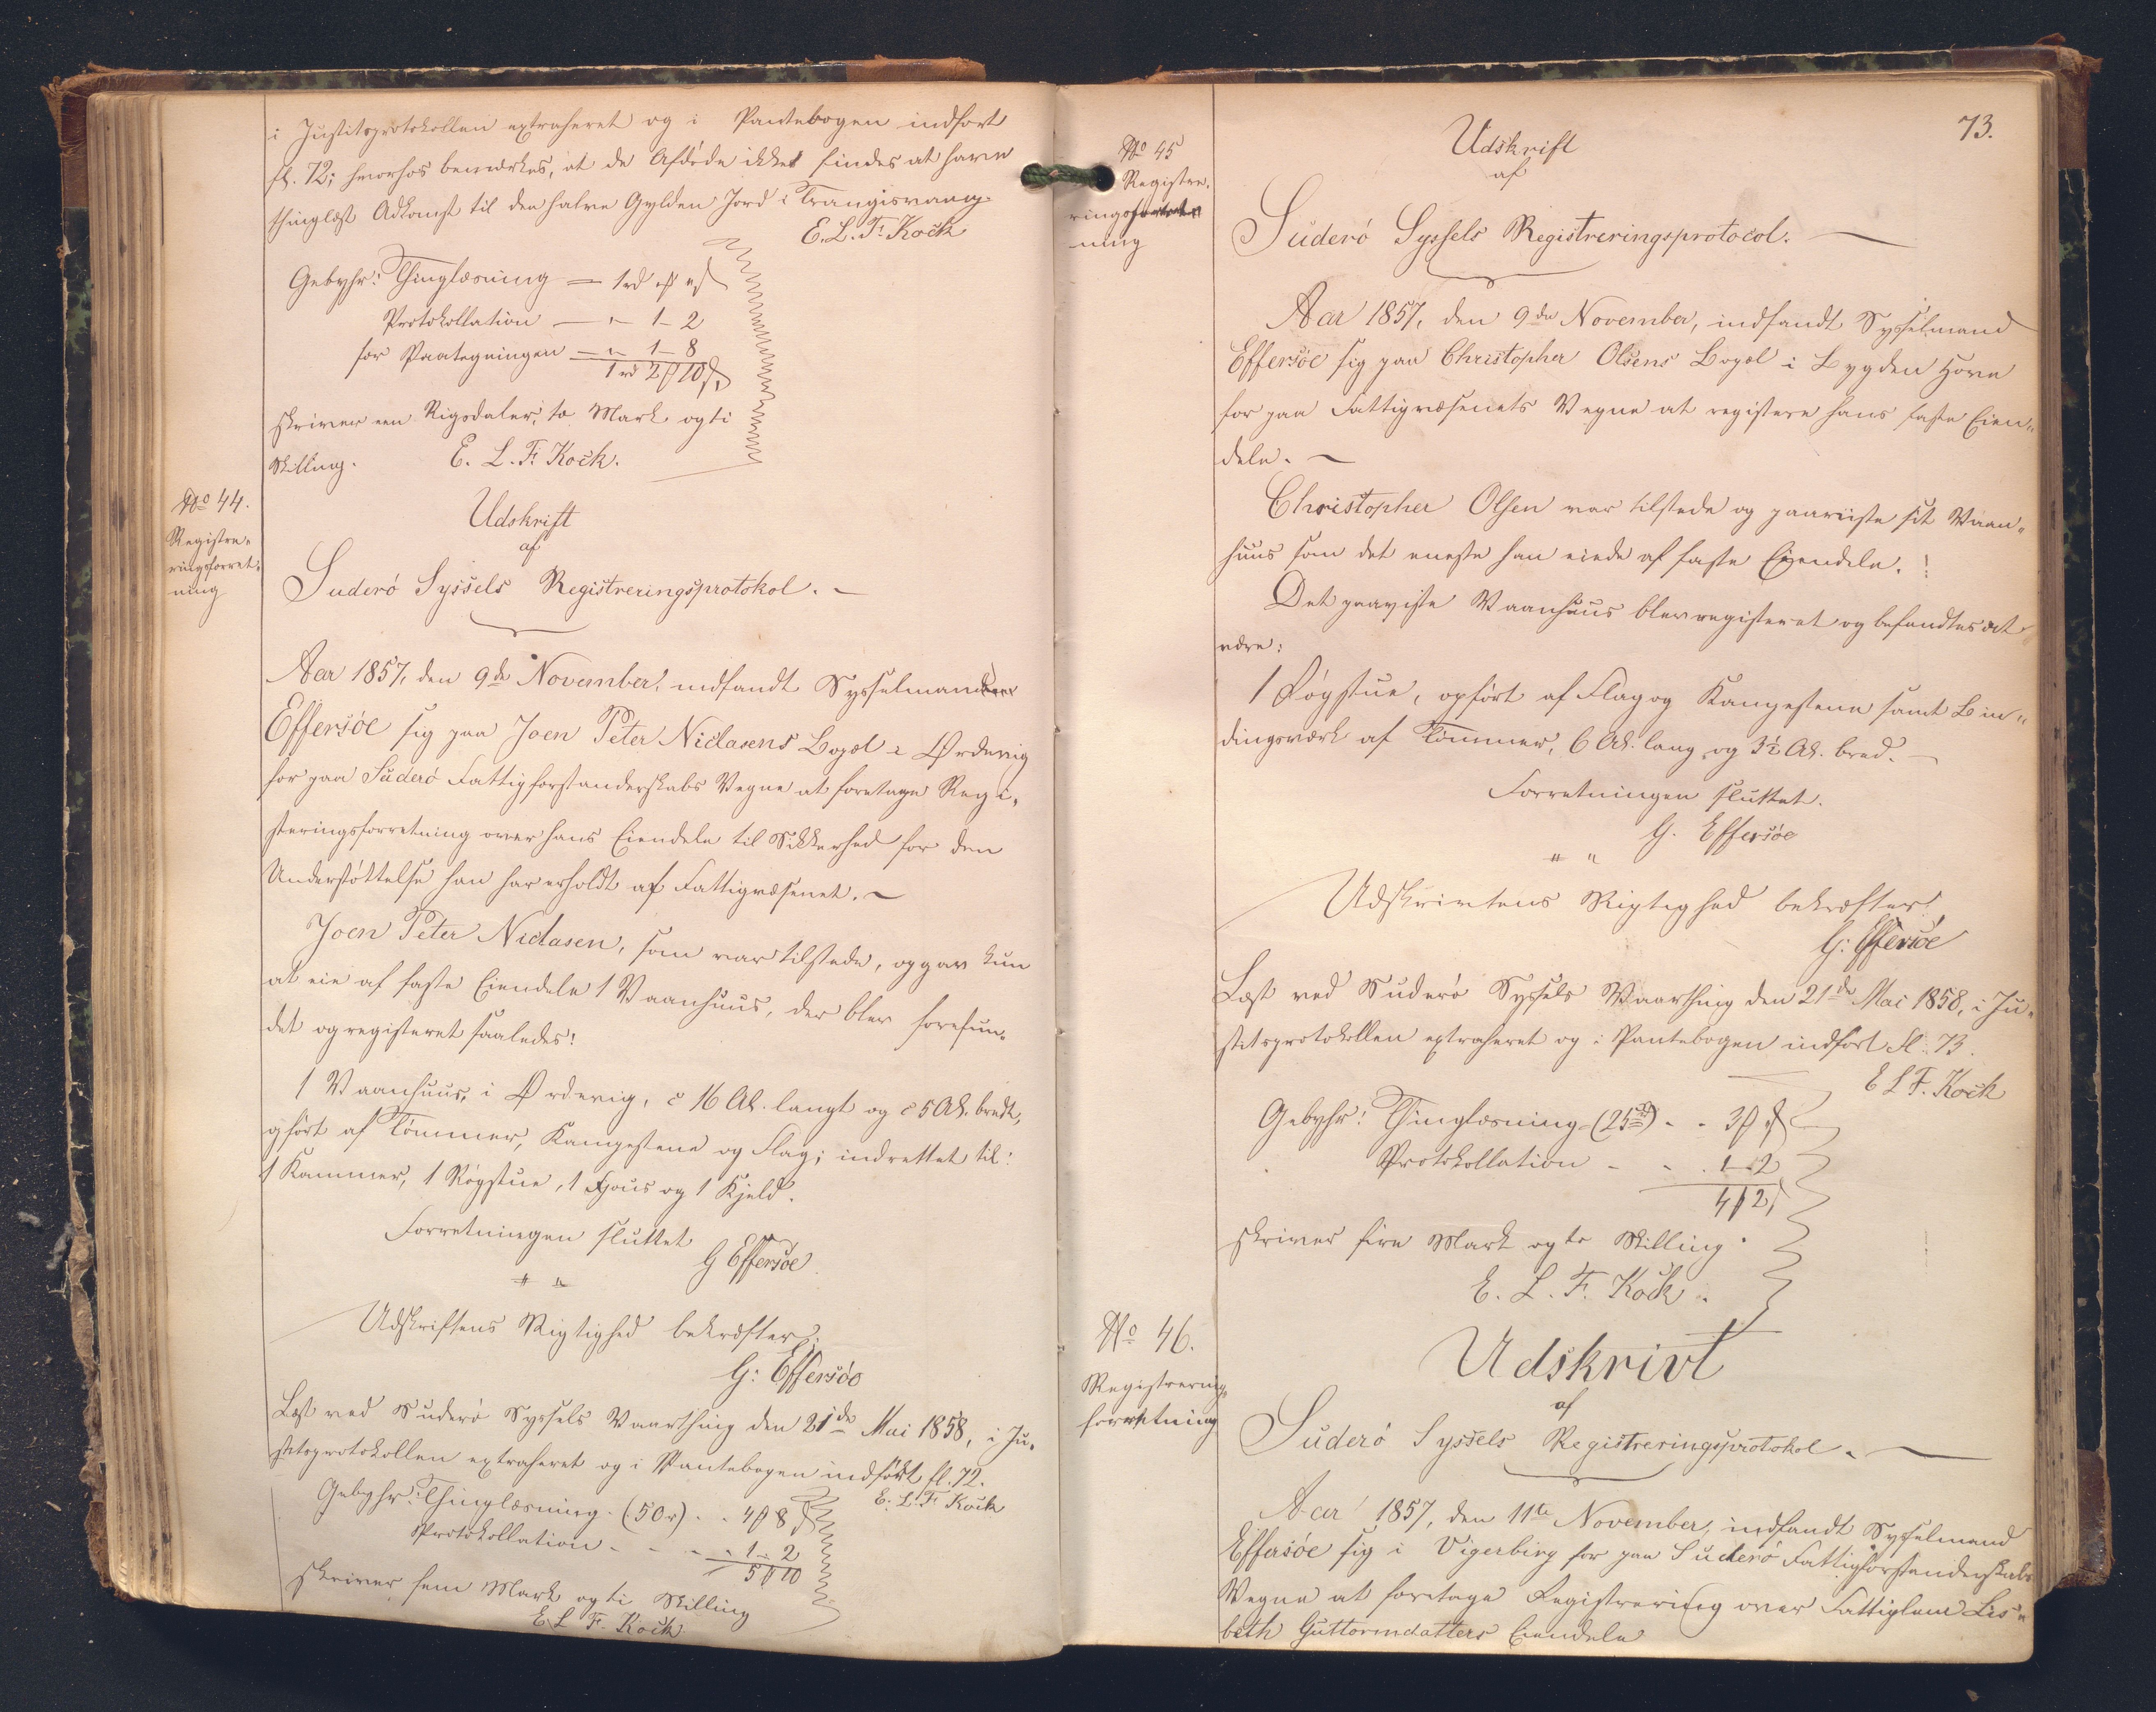 i Justitsprotokollen extraheret og i Pantebogen indført
fl. 72; hvorhos bemærkes, at de Afdøde ikke findes at have
thinglæst Adkomst til den halve Gylden Jord i Trangisvaag.
E. L. F. Kock
Gebyhr: Thinglæsning = 1rd „ß „ß
Protokollation — „ – 1 – 2
for Paategningen = „ – 1 – 8
1rd 2ß 10ß
skriver een Rigsdaler, to Mark og ti
Skilling. E. L. F. Kock.
No 44.
Registre-
ringsforret-
ning
Udskrift
af
Suderø Syssels Registreringsprotokol. —
Aar 1857, den 9de November, indfandt Sysselmand
Effersøe sig paa Joen Peter Niclasens Bopæl i Ørdevig
for paa Suderø Fattigforstanderskabs Vegne at foretage Regi-
steringsforretning over hans Eiendele til Sikkerhed for den
Understøttelse han har erholdt af Fattigvæsenet. —
Joen Peter Niclasen, som var tilstede, opgav kun
at eie af faste Eiendele 1 Vaanhuus, der blev forefun-
det og registeret saaledes:
1 Vaanhuus i Ørdevig, c 16 Al. langt og c 5 Al. bredt,
opført af Tømmer, Kampestene og Flag; indrettet til:
1 Kammer, 1 Røgstue, 1 Fjøus og 1 Kjeld.
Forretningen sluttet
G Effersøe
„ „
Udskriftens Rigtighed bekræfter.
G: Effersøe
Læst ved Suderø Syssels Vaarthing den 21de Mai 1858, i Ju-
stitsprotokollen extraheret og i Pantebogen indført fl. 72.
E. L. F. Kock
Gebyhr: Thinglæsning. (50rd) . . 4ß 8ß
Protokollation - - - „ 1 – 2
5ß 10
skriver fem Mark og ti Skilling
E L F. Kock
73.
No 45
Registre-
ringsforret-
ning
Udskrift
af
Suderø Syssels Registreringsprotocol. —
Aar 1857, den 9de November, indfandt Sysselmand
Effersøe sig paa Christopher Olsens Bopæl i Bygden Hove
for paa Fattigvæsenets Vegne at registere hans faste Eien-
dele. —
Christopher Olsen var tilstede og paaviiste sit Vaan-
huus som det eneste han eiede af faste Eiendele.
Det paaviste Vaanhuus blev registeret og befandtes at
være:
1 Røgstue, opført af Flag og Kampestene samt Bin-
dingsværk af Tømmer, 6 Al. lang og 3½ Al. bred. —
Forretningen sluttet.
G. Effersøe
„ „
Udskrivtens Rigtighed bekræfter
G: Effersøe
Læst ved Suderø Syssels Vaarthing den 21de Mai 1858, i Ju-
stitsprotokollen extraheret og i Pantebogen indført fl. 73.
E L F. Kock
Gebyhr: Thinglæsning (25rd) - - 3ß „ß
Protokollation - - . 1 – 2
4ß 2ß
skriver fire Mark og to Skilling.
E. L. F. Kock.
No 46.
Registrerings-
forretning
Udskrivt
af
Suderø Syssels Registreringsprotokol. —
Aar 1857, den 11te November, indfandt Sysselmand
Effersøe sig i Vigerbirg for paa Suderø Fattigforstanderskabs
Vegne at foretage Registrering over Fattiglem Lis-
beth Guttormdatters Eiendele